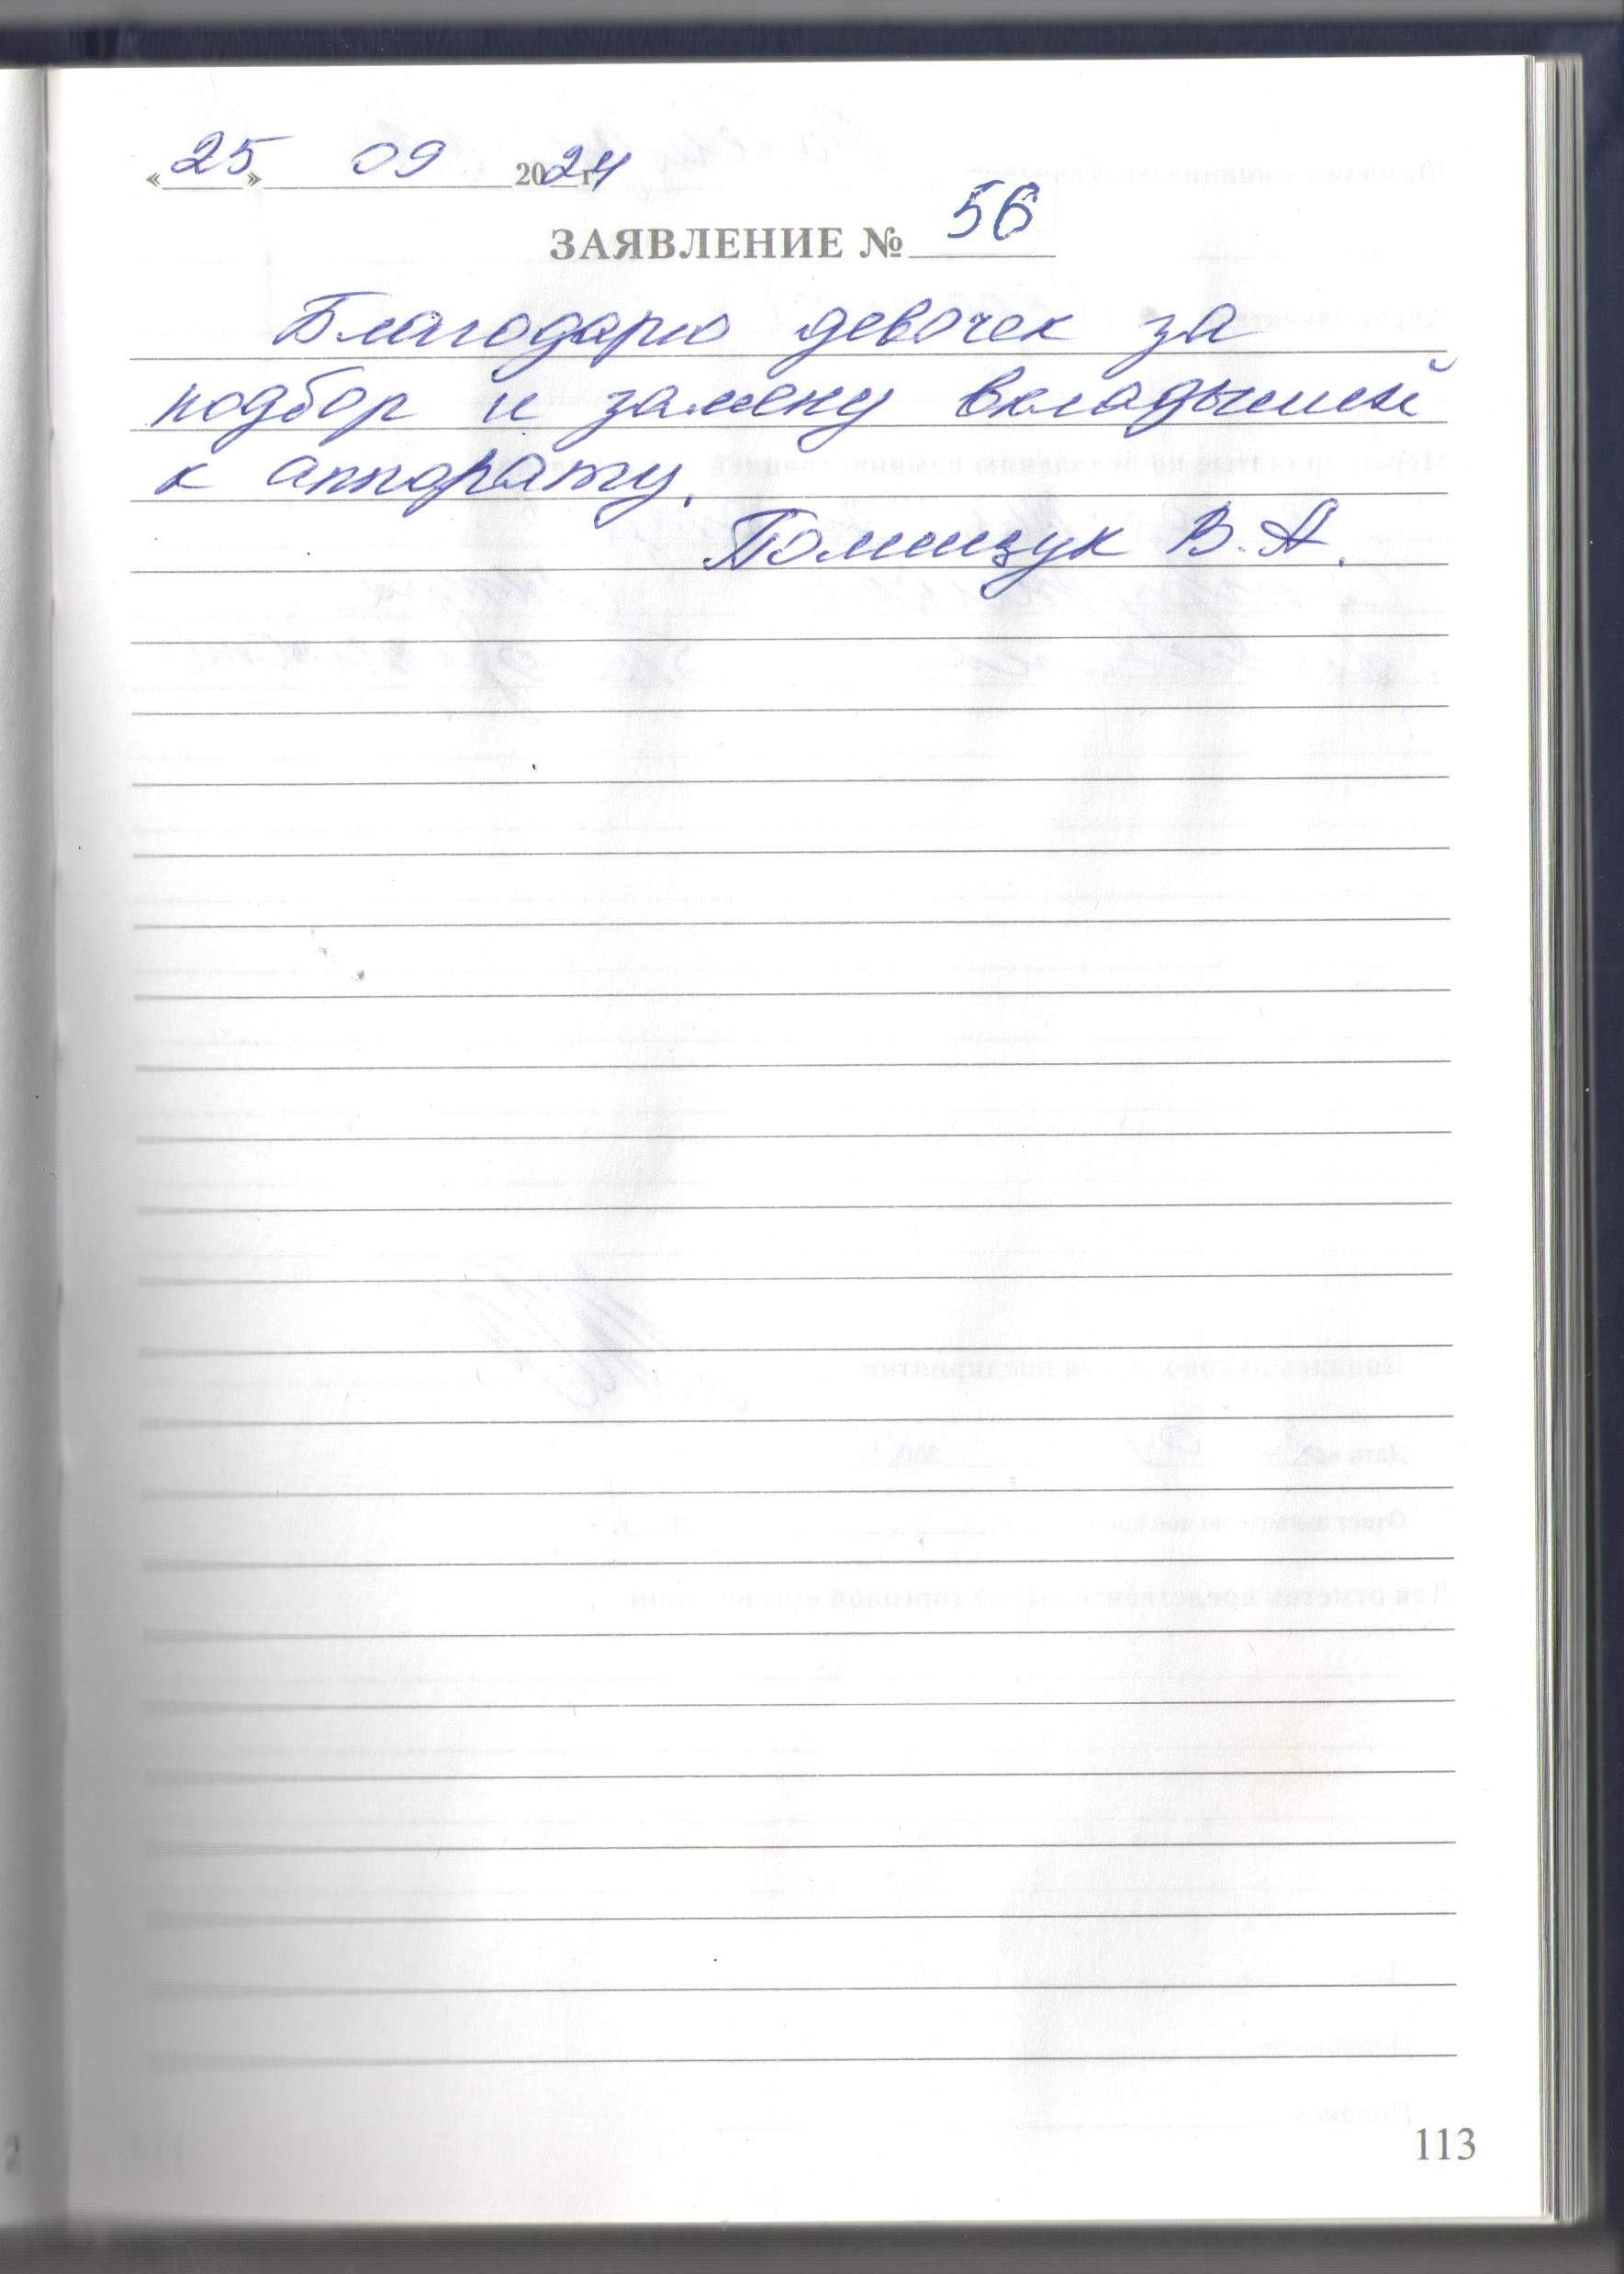 «25» 09 2024 г.
ЗАЯВЛЕНИЕ № 56
Благодарю девочек за
подбор и замену вкладышей
к аппарату.
В. А.
113